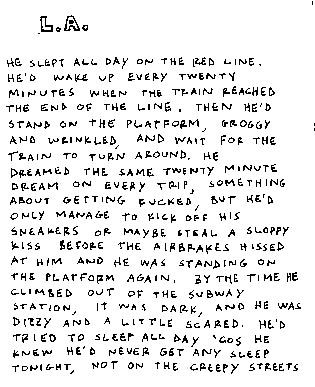 L.A.
HE SLEPT ALL DAY ON THE RED LINE.
HE'D WAKE UP EVERY TWENTY
MINUTES WHEN THE TRAIN REACHED
THE END OF THE LINE. THEN HE'D
STAND ON THE PLATFORM, GROGGY
AND WRINKLED, AND WAIT FOR THE
TRAIN TO TURN AROUND. HE
DREAMED THE SAME TWENTY MINUTE
DREAM ON EVERY TRIP, SOMETHING
ABOUT GETTING FUCKED, BUT HE'D
ONLY MANAGE TO KICK OFF HIS
SNEAKERS OR MAYBE STEAL A SLOPPY
KISS BEFORE THE AIRBRAKES HISSED
AT HIM AND HE WAS STANDING ON
THE PLATFORM AGAIN. BY THE TIME HE
CLIMBED OUT OF THE SUBWAY
STATION, IT WAS DARK, AND HE WAS
DIZZY AND A LITTLE SCARED. HE'D
TRIED TO SLEEP ALL DAY 'COS HE
KNEW HE'D NEVER GET ANY SLEEP
TONIGHT, NOT ON THE CREEPY STREETS